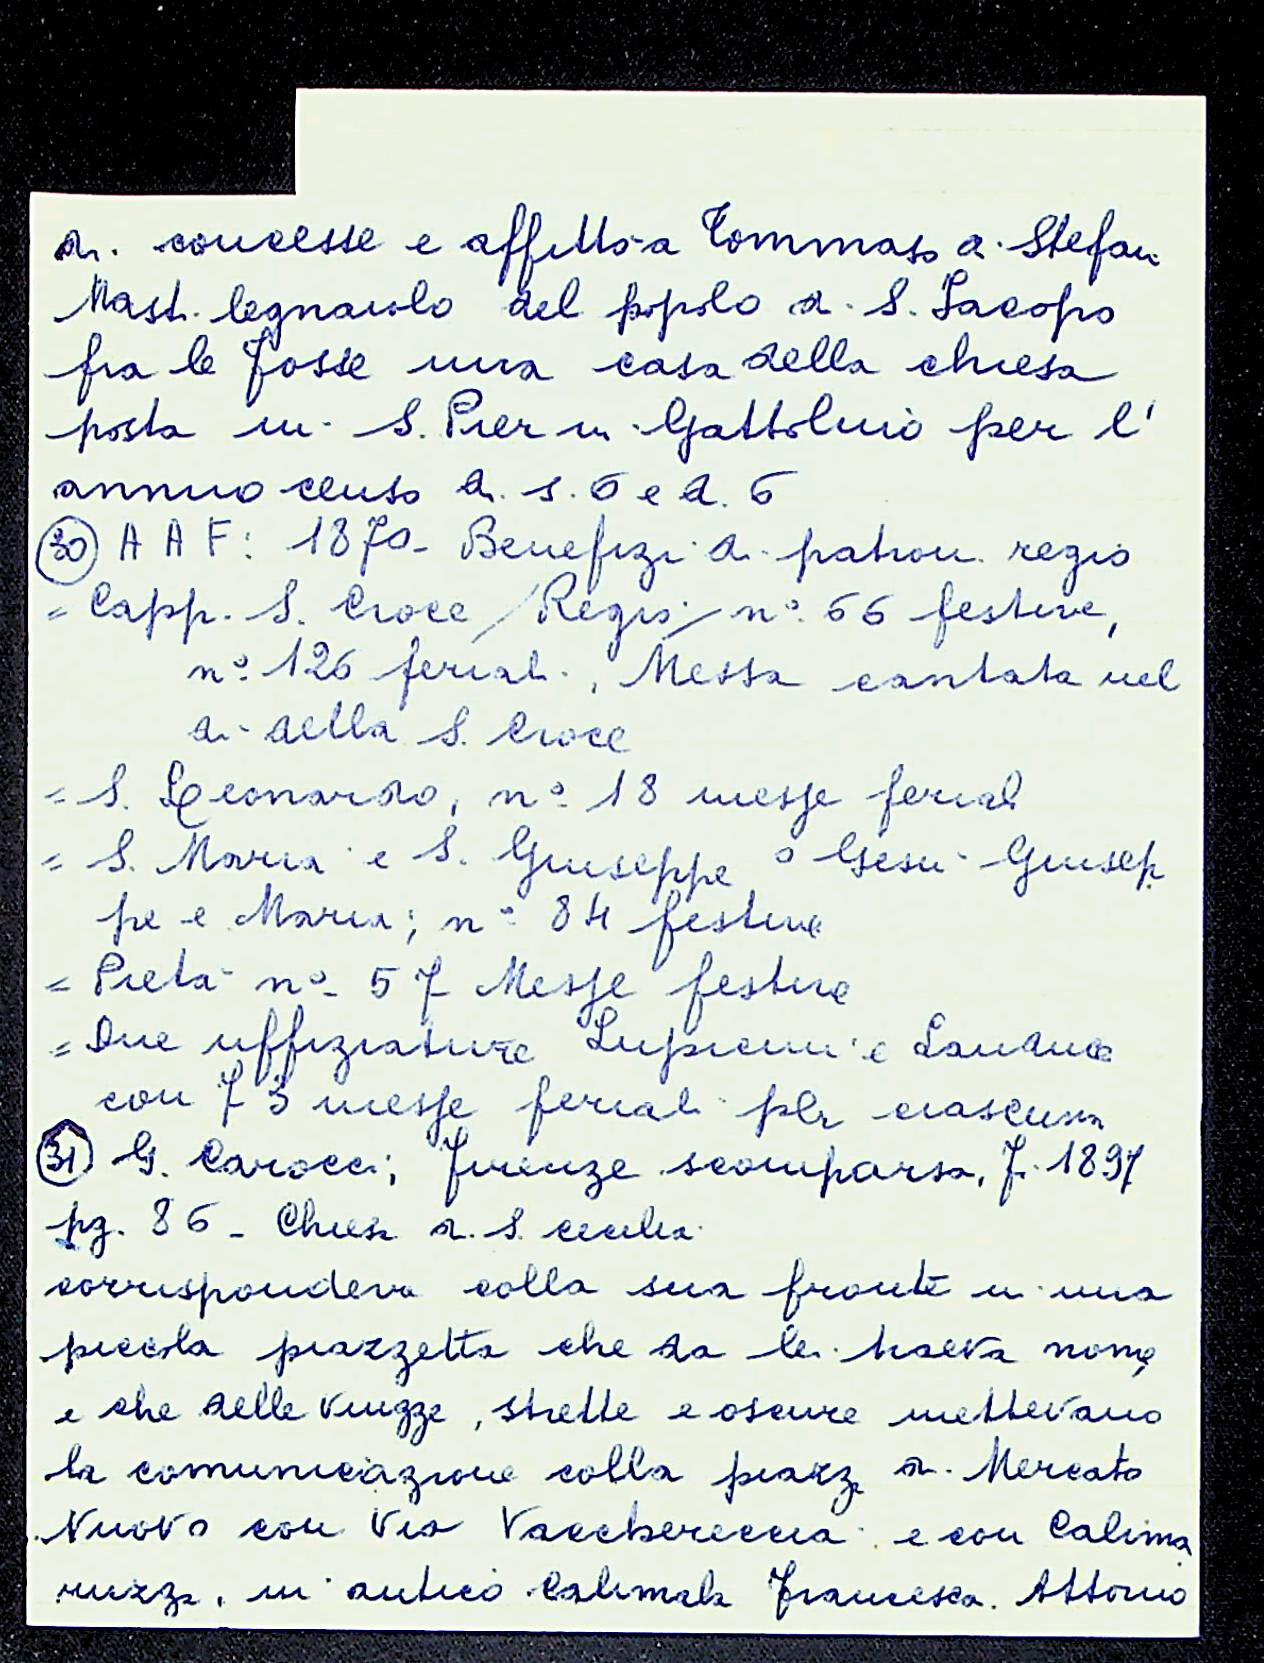 di concesse e affitto a Tommaso di Stefan
Mast. legnaiolo del popolo di S. Iacopo
fra le fosse una casa della chiesa
posta in S. Pier in Gattolino per l'
annuo censo di s. 6 e d. 6
(30) A A F: 1870 - Benefizi di patron. regio
= Capp. S. Croce / Regio / n° 66 festive,
n° 126 feriali, Messa cantata nel
dì della S. Croce
= S. Leonardo, n° 18 messe feriali
= S. Maria e S. Giuseppe o Gesù Giusep
pe e Maria; n° 84 festive
= Pietà n° 57 Messe festive
= Due uffiziature Lupicini e
con 73 messe feriali per ciascuna
(31) G. Carocci; Firenze scomparsa, F. 1897
pg. 86 - Chiesa di S. Cecilia
corrispondeva colla sua fronte in una
piccola piazzetta che da lei traeva nome,
e che delle viuzze, strette e oscure mettevano
la comunicazione colla piazza di Mercato
Nuovo con Via Vacchereccia e con Calima
ruzza, in antico Calimala Francesca. Attorno